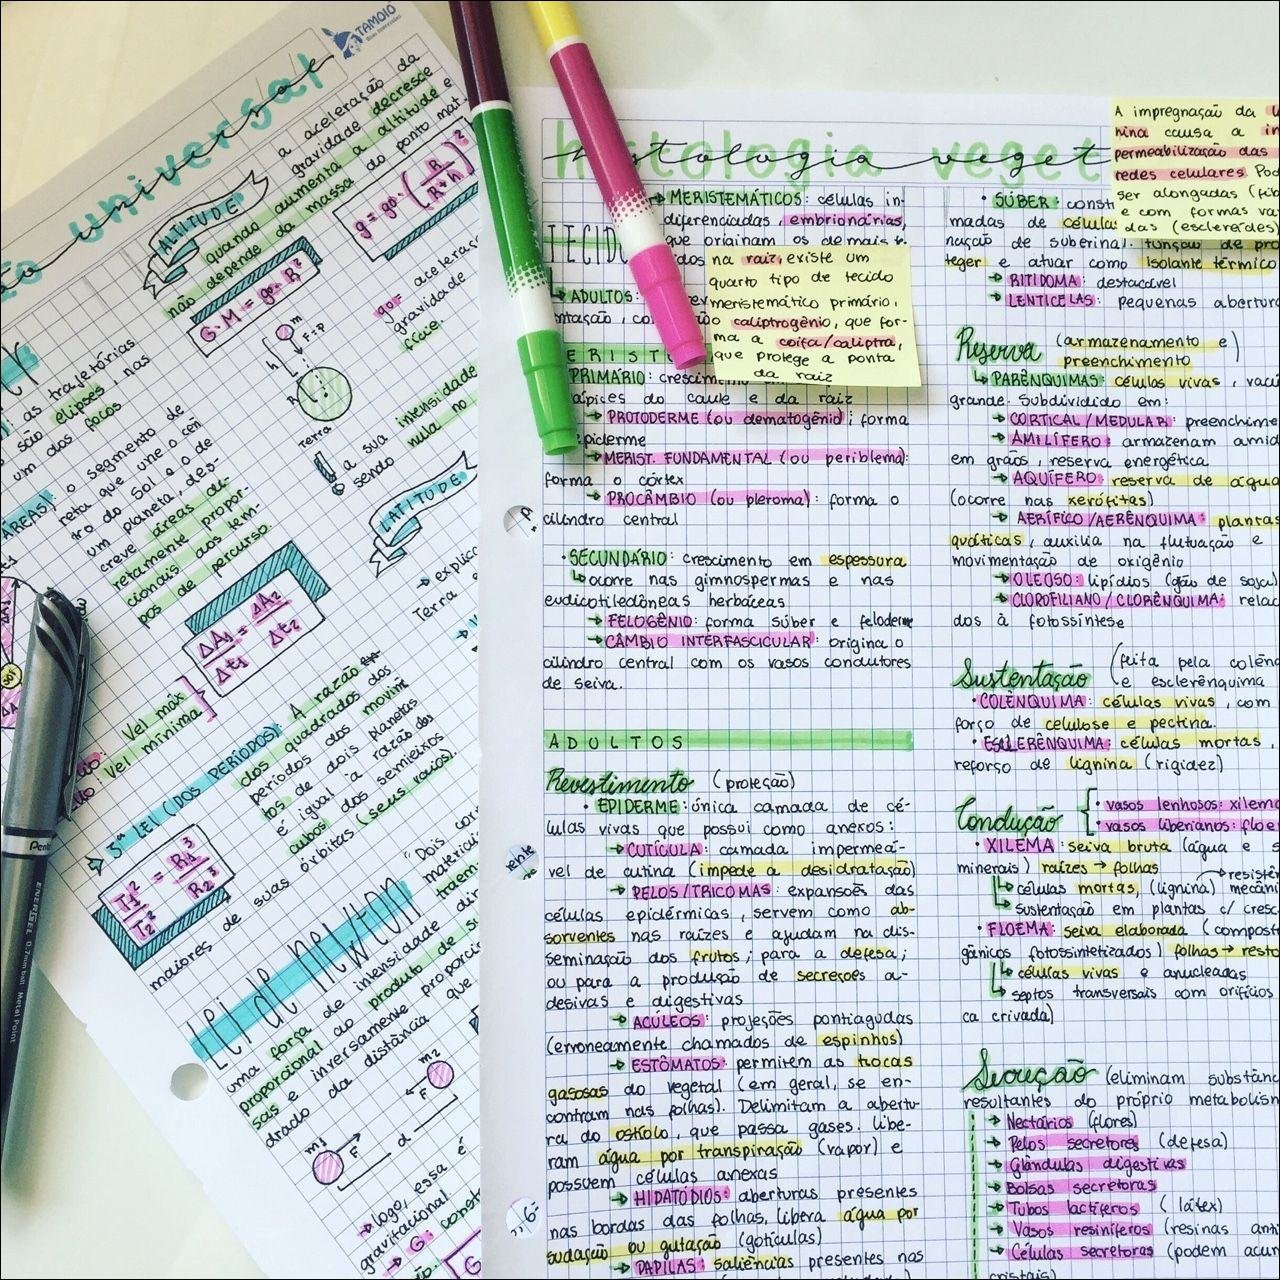 TAMOIO
universal
ALTITUDE
a aceleração da
gravidade decresce
quando aumenta a altitude e
não depende da massa do ponto mat-
g = g₀ · (R/R+h)²
G·M = g₀·R²
m
F=P
h
R
Terra
acelera
gravidade
a sua intensidade
sendo nula no
LATITUDE
→ explic
Terra
as trajetórias
são elipses, nas
um dos focos
ÁREAS): o segmento de
reta que une o cen
tro do Sol e o de
um planeta, des-
creve áreas di-
retamente propor-
cionais aos tem-
pos de percurso.
ΔA₁/Δt₁ = ΔA₂/Δt₂
SOL
Vel máx
Vel mínima
3ª LEI (DOS PERÍODOS): A razão
dos quadrados dos
períodos dos movimen
tos de dois planetas
é igual à razão dos
cubos dos semieixos
maiores de suas órbitas (seus raios).
T₁²/T₂² = R₁³/R₂³
lei de newton
"Dois cor
uma força de intensidade
proporcional ao produto de su
sas e inversamente proporci
drado da distância que
m₂
F
d
m₁
F
→ logo, essa é
gravitacional
→ G: const
Pentel
ENERGEL 0.7mm ball Metal Point
histologia veget
TECID
→ MERISTEMÁTICOS: células in-
diferenciadas, embrionárias,
que originam os demais t-
idos
→ ADULTOS:
entação, co
na raiz, existe um
quarto tipo de tecido
meristemático primário,
o caliptrogênio, que for-
ma a coifa/caliptra,
que protege a ponta
da raiz
ERIST
PRIMÁRIO: crescim
ápices do caule e da raiz
→ PROTODERME (ou dermatogênio): forma
epiderme
→ MERIST. FUNDAMENTAL (ou periblema):
forma o córtex
→ PROCÂMBIO (ou pleroma): forma o
cilindro central
• SECUNDÁRIO: crescimento em espessura
↳ ocorre nas gimnospermas e nas
eudicotiledôneas herbáceas
→ FELOGÊNIO: forma súber e feloderme
→ CÂMBIO INTERFASCICULAR: origina o
cilindro central com os vasos condutores
de seiva.
ADULTOS
Revestimento (proteção)
• EPIDERME: única camada de cé-
lulas vivas que possui como anexos:
→ CUTÍCULA: camada impermeá-
vel de cutina (impede a desidratação)
→ PELOS/TRICOMAS: expansões das
células epidérmicas, servem como ab-
sorventes nas raízes e ajudam na dis-
seminação dos frutos; para a defesa;
ou para a produção de secreções a-
desivas e digestivas
→ ACÚLEOS: projeções pontiagudas
(erroneamente chamados de espinhos)
→ ESTÔMATOS: permitem as trocas
gasosas do vegetal (em geral, se en-
contram nas folhas). Delimitam a abertu-
ra do ostíolo, que passa gases. Libe-
ram água por transpiração (vapor) e
possuem células anexas
→ HIDATÓDIOS: aberturas presentes
nas bordas das folhas, libera água por
sudação ou gutação (gotículas)
→ PAPILAS: saliências presentes nas
A impregnação da
nina causa a im
permeabilização das
redes celulares. Pod
ser alongadas (fib
e com formas va
das (esclereídes)
• SÚBER: const
madas de célula
nação de suberina. função de pro
teger e atuar como isolante térmico
→ RITIDOMA: destacável
→ LENTICELAS: pequenas abertura
Reserva (armazenamento e)
preenchimento
↳ PARÊNQUIMAS: células vivas, vacú
grande. Subdividido em:
→ CORTICAL/MEDULAR: preenchime
→ AMILÍFERO: armazenam amid
em grãos, reserva energética
→ AQUÍFERO: reserva de água
(ocorre nas xerófitas)
→ AERÍFICO/AERÊNQUIMA: plantas
quáticas, auxilia na flutuação e
movimentação de oxigênio
→ OLEOSO: lipídios (grão de soja)
→ CLOROFILIANO/CLORÊNQUIMA: relac
dos à fotossíntese
Sustentação (feita pela colên
e esclerênquima
• COLÊNQUIMA: células vivas, com
forço de celulose e pectina.
• ESCLERÊNQUIMA: células mortas,
reforço de lignina (rigidez)
Condução { • vasos lenhosos: xilema
• vasos liberianos: floe
• XILEMA: seiva bruta (água e s
minerais) raízes → folhas
↳ células mortas, (lignina) → resistên
mecâni
↳ sustentação em plantas c/ cresc
• FLOEMA: seiva elaborada (compost
gânicos fotossintetizados) folhas → resto
↳ células vivas e anucleadas
↳ septos transversais com orifícios
ca crivada)
Secreção (eliminam substânc
resultantes do próprio metabolism
→ Nectários (flores)
→ Pelos secretores (defesa)
→ Glândulas digestivas
→ Bolsas secretoras
→ Tubos lactíferos (látex)
→ Vasos resiníferos (resinas ant
→ Células secretoras (podem acum
cristais)